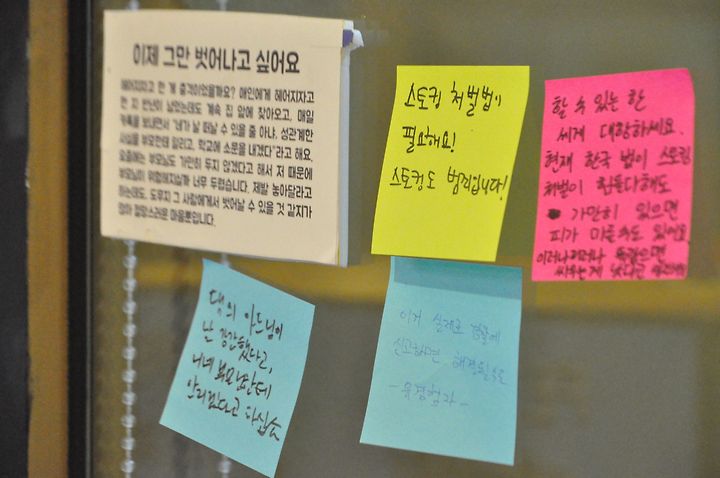 이제 그만 벗어나고 싶어요
헤어지자고 한 게 충격이었을까요? 애인에게 헤어지자고
한 지 반년이 넘었는데도 계속 집 앞에 찾아오고, 매일
카톡을 보내면서 "네가 날 떠날 수 있을 줄 아냐, 성관계한
사실을 부모한테 알리고, 학교에 소문을 내겠다"라고 해요.
요즘에는 부모님도 가만히 두지 않겠다고 해서 저 때문에
부모님이 위험해지실까 너무 두렵습니다. 제발 놓아달라고
하는데도, 도무지 그 사람에게서 벗어날 수 있을 것 같지가
않아 절망스러운 마음뿐입니다.
스토킹 처벌법이
필요해요!
스토킹도 범죄입니다!
할 수 있는 한
세게 대항하세요.
현재 한국 법이 스토킹
처벌이 힘들다해도
가만히 있으면
피가 마를수도 있어요
싸우는게 낫다고
댁의 아드님이
난 강간했다고,
니네 부모한테
알리겠다고 하십쇼
이거 실제로 경찰에
신고하면 해결될수도
- 유경험자 -